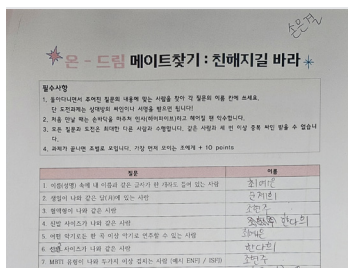 온 - 드림 메이트찾기 : 친해지길 바라
필수사항
1. 돌아다니면서 주어진 질문의 내용에 맞는 사람을 찾아 각 질문의 이름 칸에 쓰세요.
단 도전과제는 상대방의 싸인이나 서명을 받으면 됩니다!
2. 처음 만날 때는 손바닥을 마주쳐 인사(하이파이브)하고 헤어질 땐 악수합니다.
3. 모든 질문과 도전은 최대한 다른 사람과 수행합니다. 같은 사람과 세 번 이상 중복 싸인 받을 수 없습니다.
4. 과제가 끝나면 조별로 모입니다. 가장 먼저 모이는 조에게 + 10 points
질문 이름
1. 이름(성명) 속에 내 이름과 같은 글자가 한 개라도 들어 있는 사람
2. 생일이 나와 같은 달(月)에 있는 사람
3. 혈액형이 나와 같은 사람
4. 신발 사이즈가 나와 같은 사람 한다희
5. 어떤 악기로든 한 곡 이상 악기로 연주할 수 있는 사람
6. 사이즈가 나와 같은 사람 한다희
7. MBTI 유형이 나와 두가지 이상 겹치는 사람 (예시 ENFJ / ISFJ)